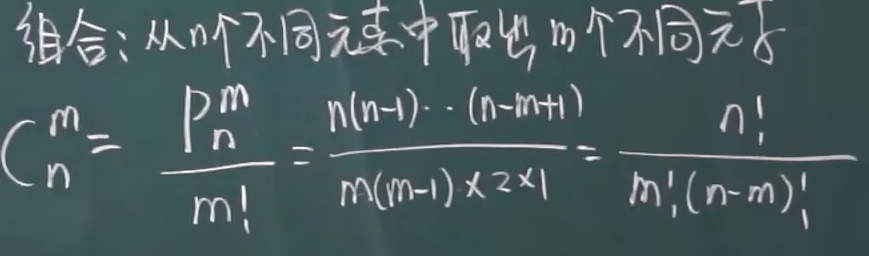 组合:从n个不同元素中取出m个不同元素
C_n^m = P_n^m / m! = n(n-1)··(n-m+1) / m(m-1)×2×1 = n! / m!(n-m)!